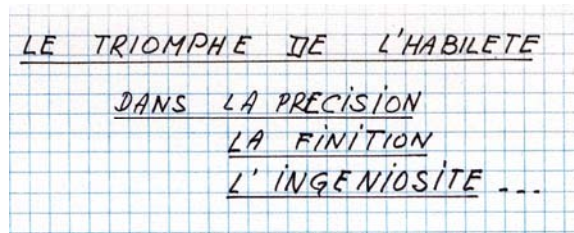 LE TRIOMPHE DE L'HABILETE
DANS LA PRECiSiON
LA FiNiTiON
L' iNGENiOSiTE ...